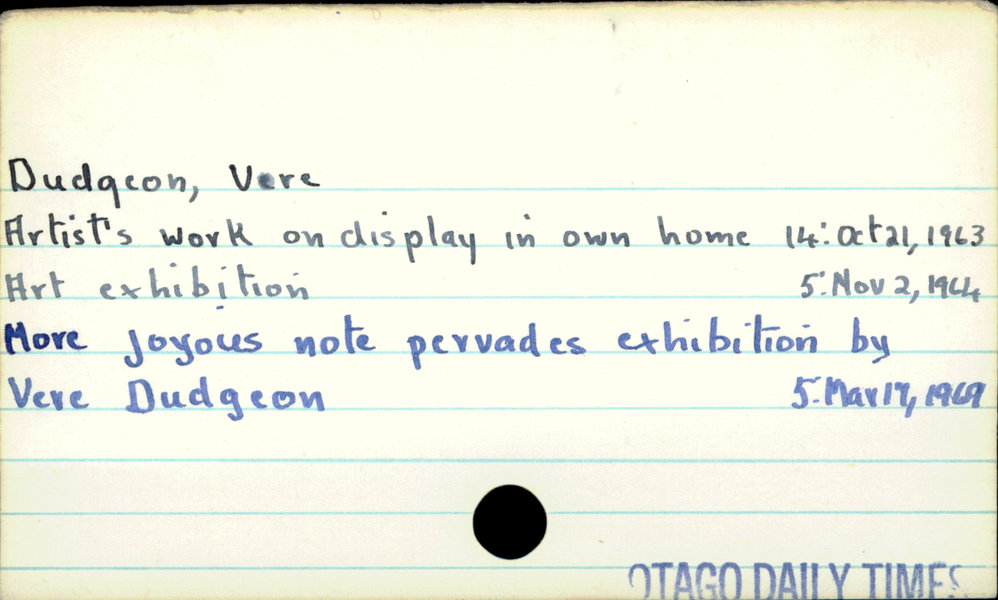 Dudgeon, Vere
Artist's work on display in own home 14: Oct 21, 1963
Art exhibition 5: Nov 2, 1964
More joyous note pervades exhibition by
Vere Dudgeon 5: Mar 17, 1969
OTAGO DAILY TIMES